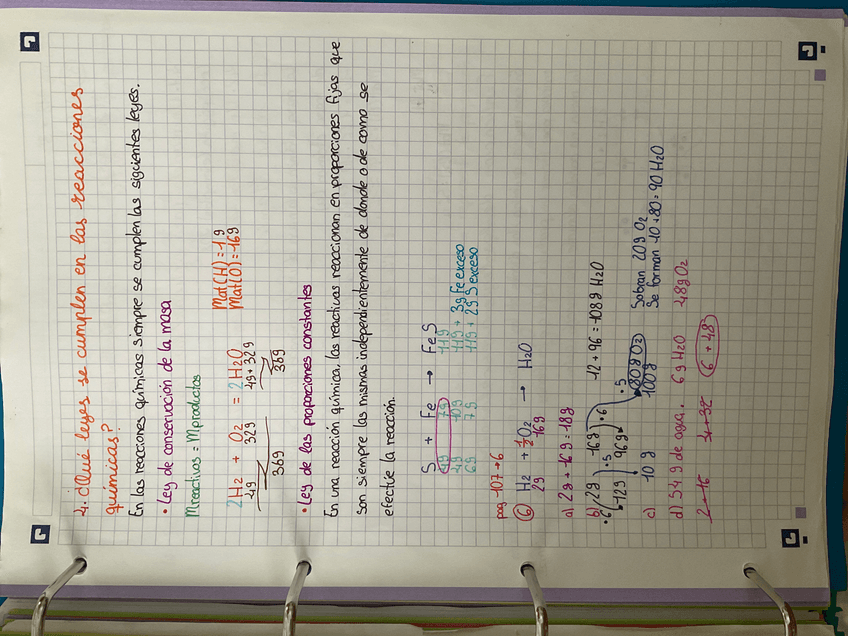 4. ¿Qué leyes se cumplen en las reacciones
químicas?
En las reacciones químicas siempre se cumplen las siguientes leyes.
• Ley de conservación de la masa
Mreactivos = Mproductos
Mat(H)=1g
Mat(O)=16g
2H2 + O2 = 2H2O
4g 32g 4g+32g
36g 36g
• Ley de las proporciones constantes
En una reacción química, los reactivos reaccionan en proporciones fijas que
son siempre las mismas independientemente de donde o de como se
efectúe la reacción.
S + Fe → FeS
4g 7g 11g
4g 10g 11g + 3g Fe exceso
6g 7g 11g + 2g S exceso
pag 107→6
6 H2 + 1/2O2 → H2O
2g 16g
a) 2g + 16g = 18g
b) 2g 16g 12 + 96 = 108g H2O
·6 12g 96g ·6
·5 ·5
c) 10g 80g O2 Sobran 20g O2
100g Se forman 10+80=90 H2O
d) 54g de agua. 6g H2O 48g O2
2 16 4+32 6 + 48